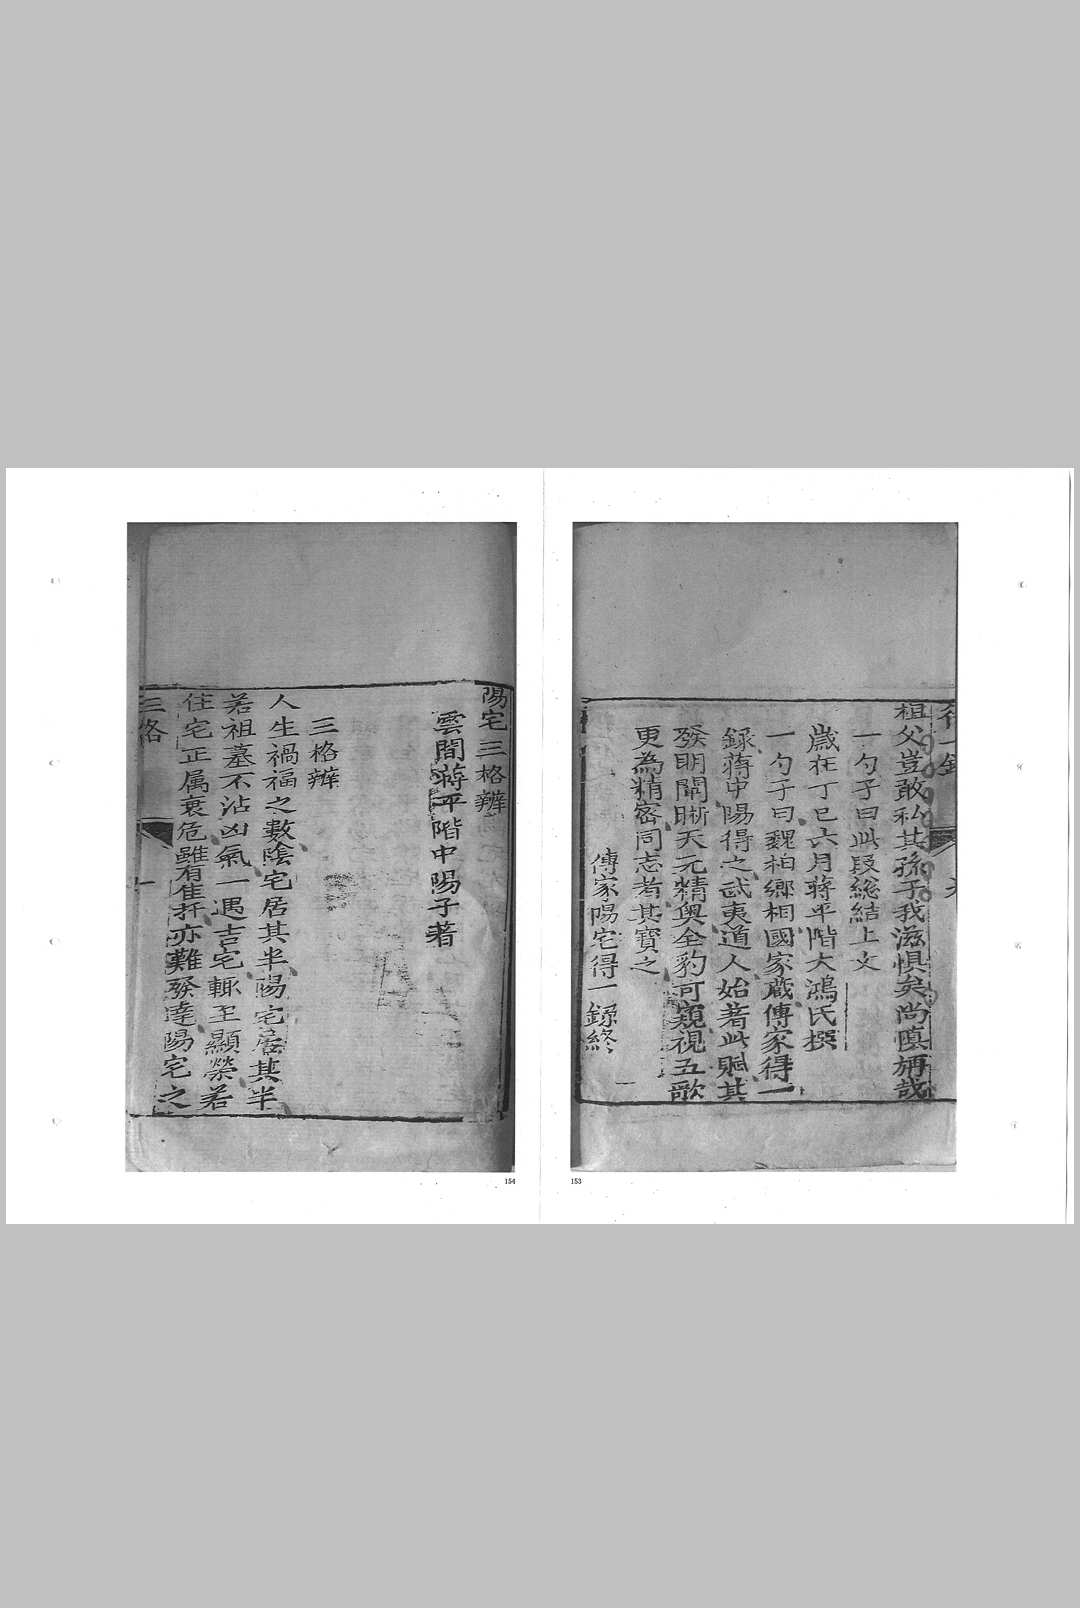 得一錄
祖父豈敢私其孫子我滋懼矣尚慎旃哉
一勺子曰此段総結上文
歲在丁巳六月蔣平階大鴻氏撰
一勺子曰魏柏鄉相國家藏傳家得一
録蔣中陽得之武夷道人始著此賦其
發明闡晰天元精奧全豹可窺視五歌
更為精密同志者其寶之
傳家陽宅得一錄終
153
陽宅三格辨
雲間蔣平階中陽子著
三格辨
人生禍福之數陰宅居其半陽宅居其半
若祖墓不沾凶氣一遇吉宅輒至顯榮若
住宅正属衰危雖有佳扦亦難發達陽宅之
三格
一
154